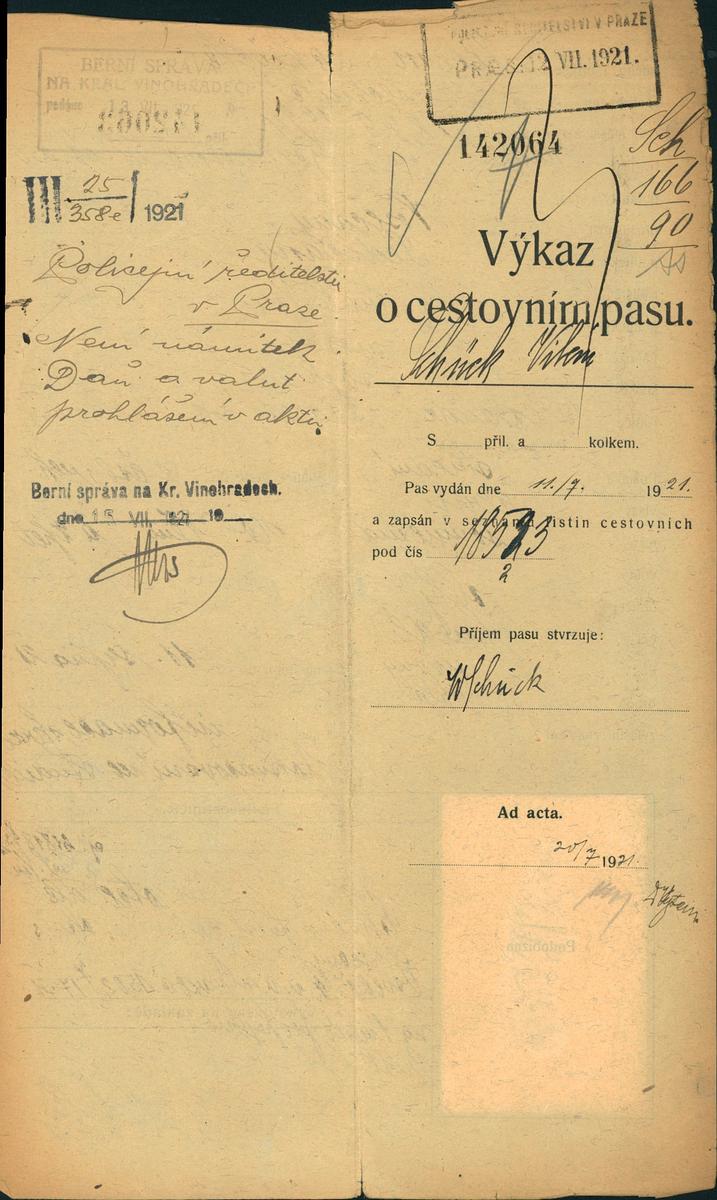 BERNÍ SPRÁVA
NA KRÁL. VINOHRADECH
III 25/358e / 1921
Policejní ředitelství
v Praze.
Není námitek.
Daň a valut
prohlášení v aktu.
Berní správa na Kr. Vinohradech.
dne VII. 1921 19
POLICEJNÍ ŘEDITELSTVÍ V PRAZE
VII. 1921.
142064
Sch
166
90
Výkaz
o cestovním pasu.
Schück Vilém
S příl. a kolkem.
Pas vydán dne 11./7. 1921.
a zapsán v seznamu listin cestovních
pod čís 18523
2
Příjem pasu stvrzuje:
WSchück
Ad acta.
20/7 1921.
Podobizna